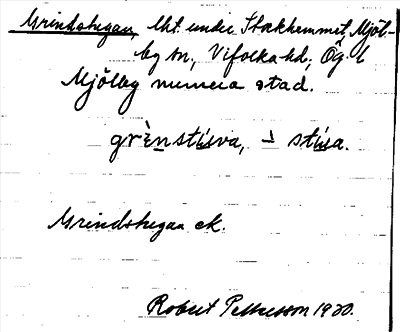 Grindstugan, lht. under Stockhemmet, Mjöl-
by sn., Vifolka hd, Ög. l
Mjölby numera stad.
grènstu̲va, ˋ stu̲a.
Grindstugan ek.
Robert Pettersson 1920.